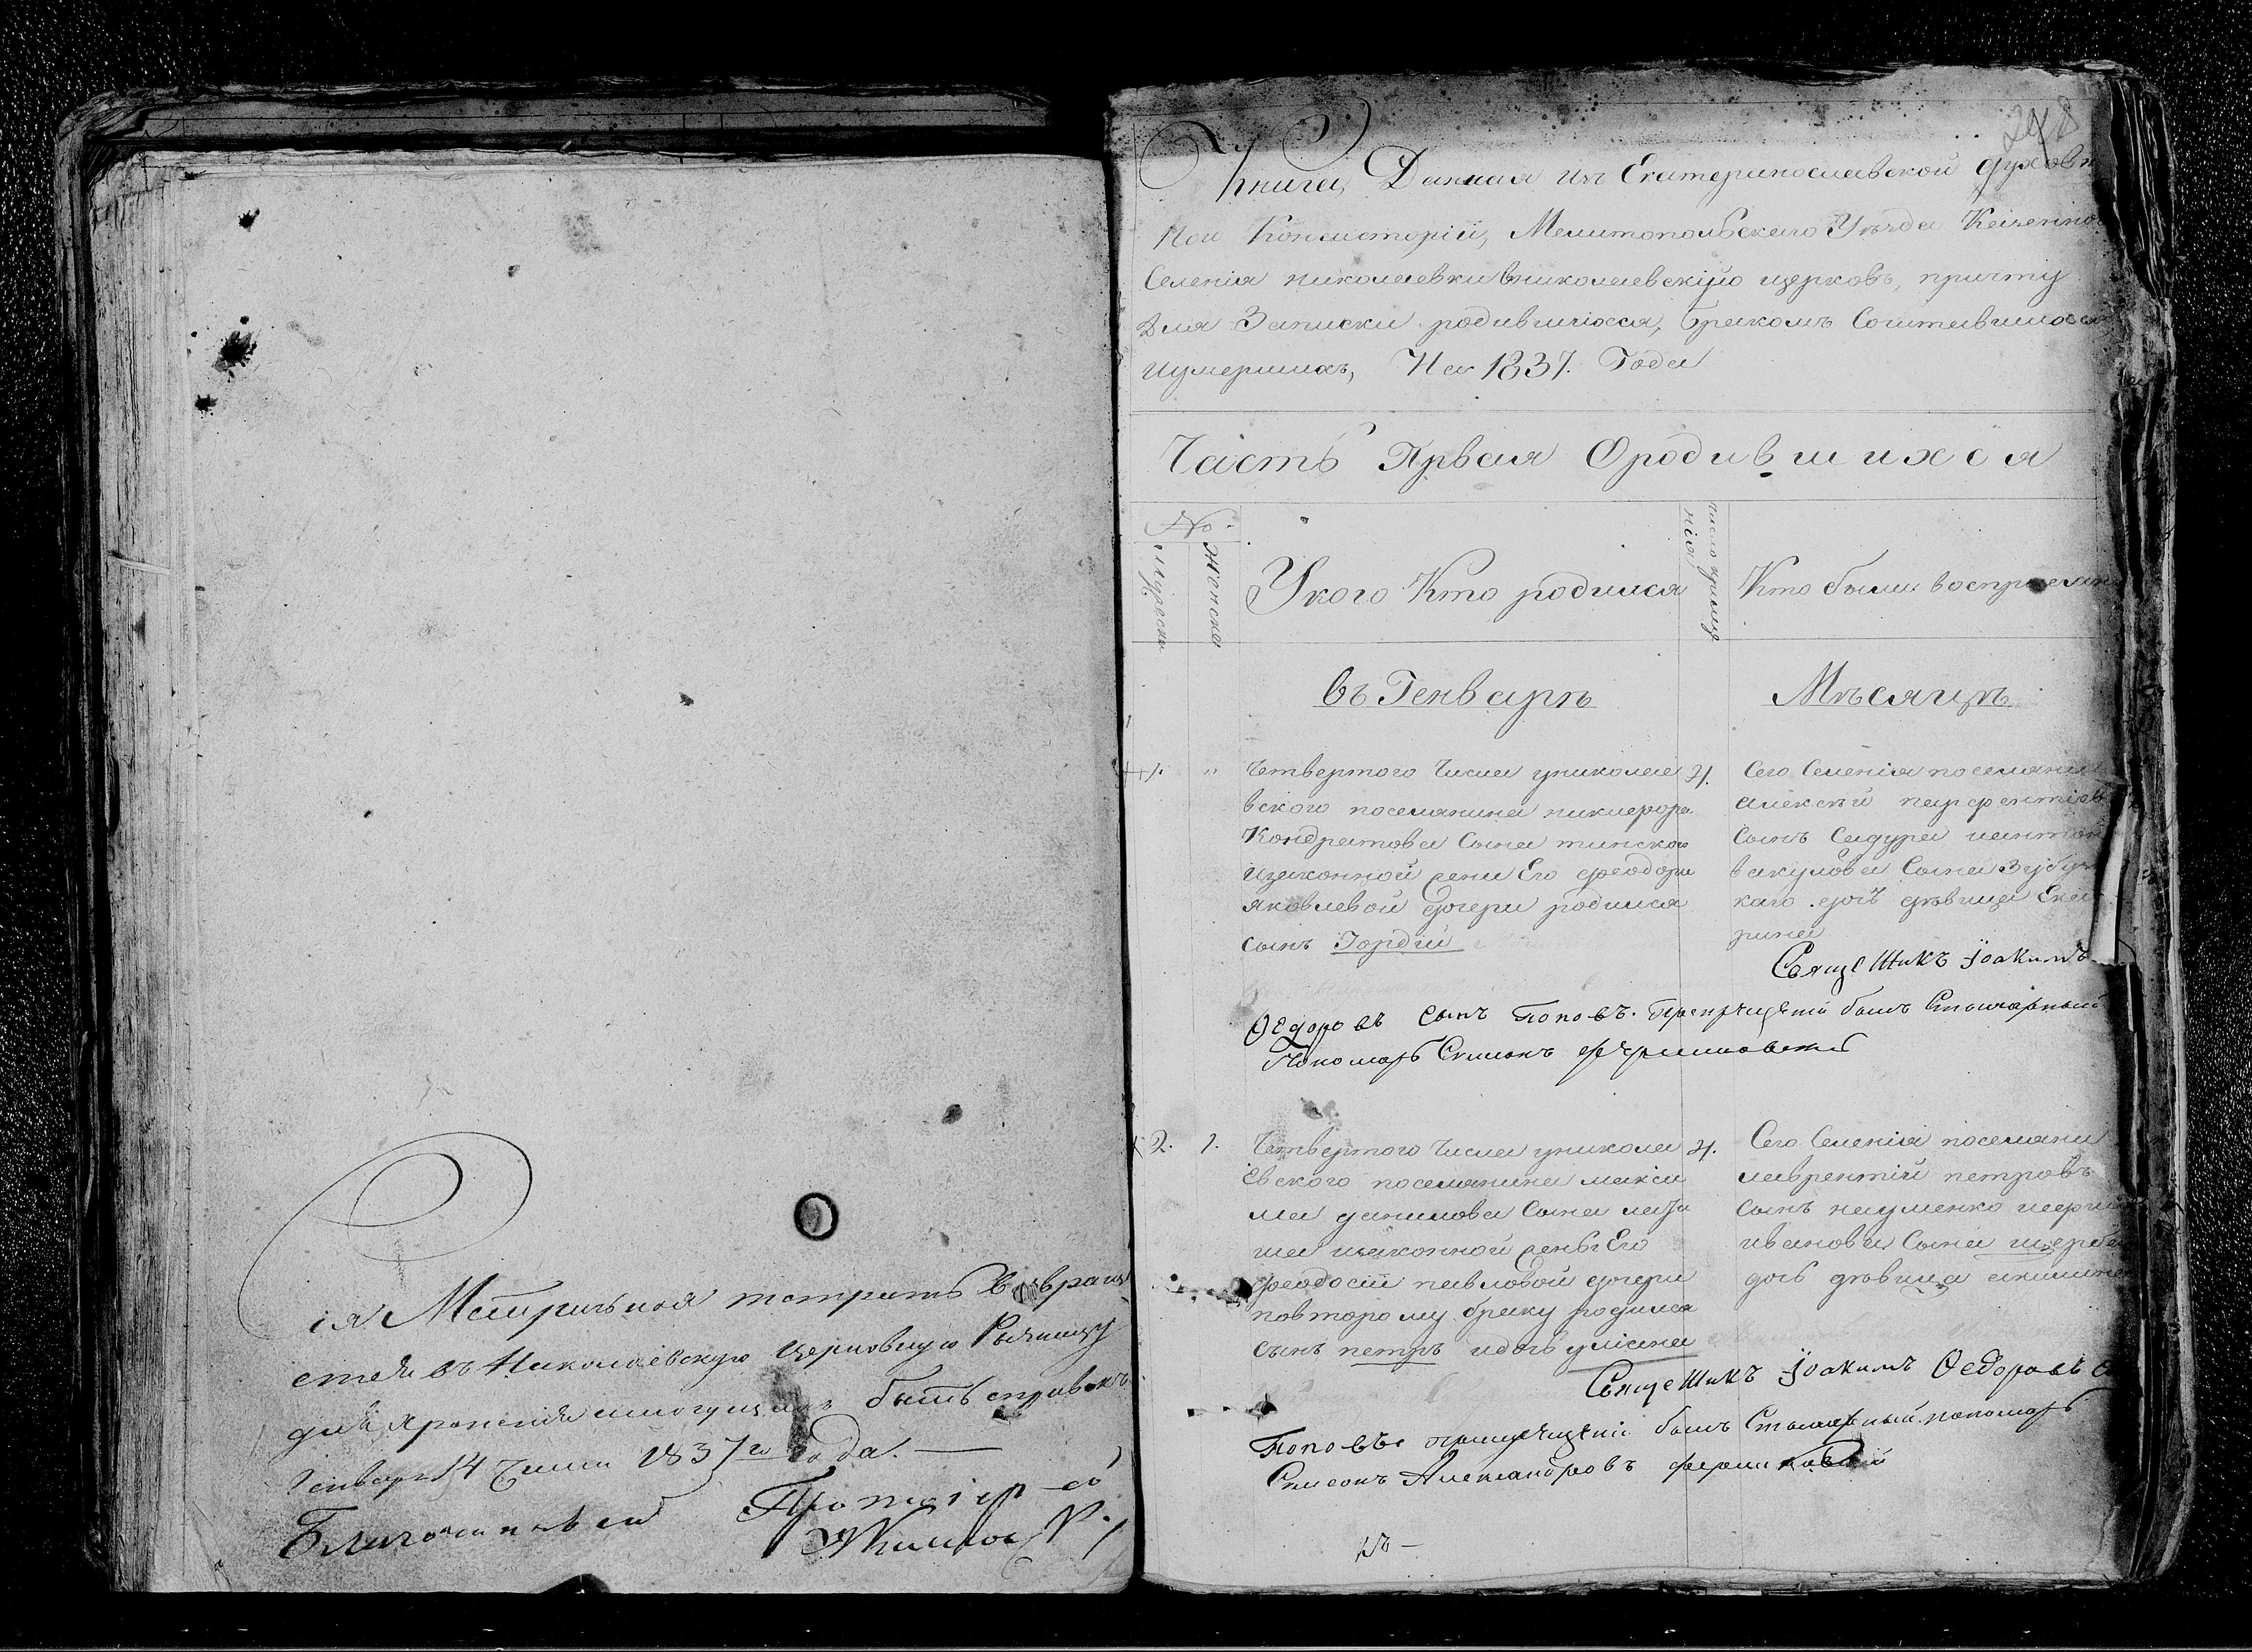 ія Метричная тетрать возвращ
стся въ Николаевскую церковную Ризницу
для хроненія имогущихъ быть справокъ
Генваря 14 Числа 1837го Года.
Благочинный Протоіерей
248
Книга, Данная изъ Екатеринославской духовн
ной Консисторіи, Мелитопольскаго Уезда Казенно
Селенія николаевки вниколаевскую церковь, причту
Для Записки родившихся, бракомъ Сочетавшихся
иумершихъ, На 1837. Года
Часть Првая Ородившихся
№
Мужеска
Женска
Укого Кто родился
число креще
нія
Кто были восприемни
въ Генваръ Мъсяцъ
1. " Четвертого Числа униколае
вского поселянина никифора
Кондратова Сына тинского
изаконной жени Его феодори
яковлевой дочери родился
сынъ Гордій
4.
Сего Селенія поселянин
алексъй парфентіев
сынъ Садура иантон
вакулова Сына Зубри
каго дочъ дъвица Ека
рина
Священникъ Іоакимъ
Ѳедоровъ сынъ Поповъ. Прикрещеніи былъ Стихарный
Пономарь Симонъ
2. 1. Четвертого Числа уникола
Евского поселянина макси
ма данилова Сына
изаконной жены Его
феодосіи павловой дочери
повторому браку родился
сынъ петръ идочь уліана
4.
Сего Селенія поселяни
лаврентій петровъ
сынъ науменко
иванова Сына щерба
дочь дъвица акилина
Священникъ Іоакимъ Ѳедоровъ с
Поповъ прикрещеніи былъ Стихарный пономарь
Симонъ Александровъ